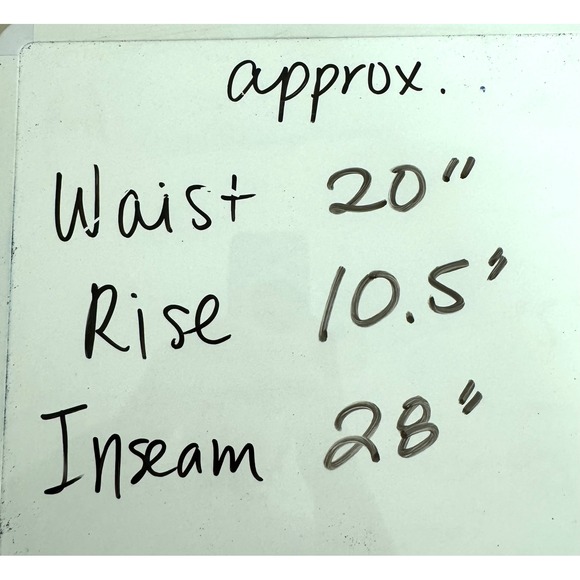 approx.
Waist 20"
Rise 10.5"
Inseam 28"